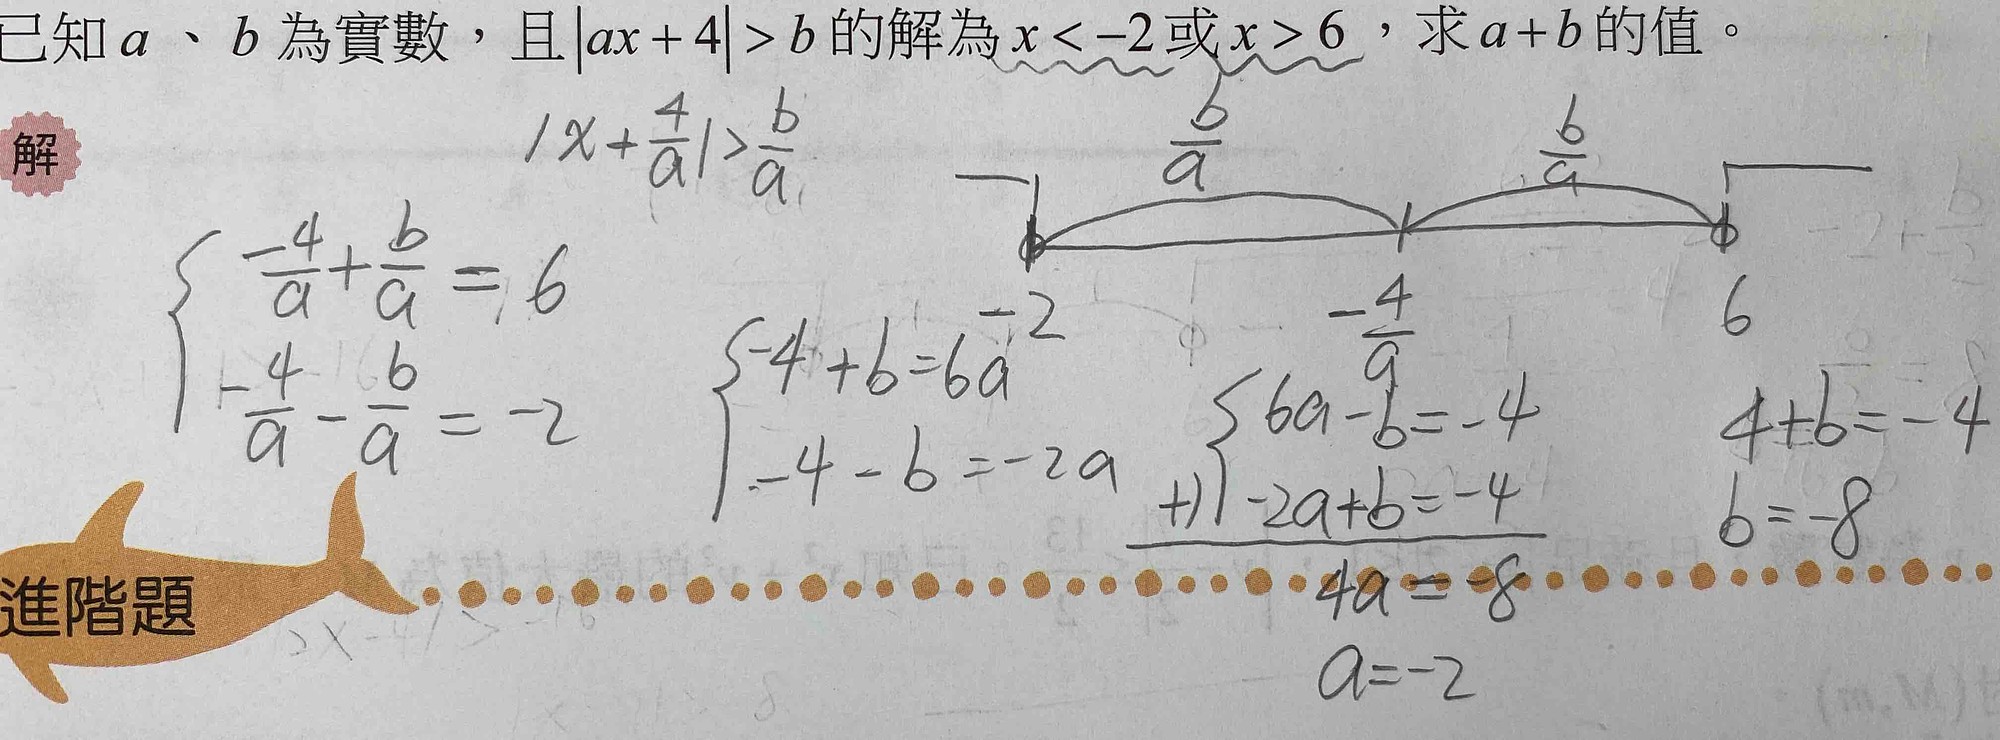 已知 a、b 為實數，且|ax+4|>b 的解為 x<−2 或 x>6，求 a+b 的值。
解
|x+4/a|>b/a
b/a b/a
-2 -4/a 6
{-4/a+b/a=6
-4/a-b/a=-2
{-4+b=6a
-4-b=-2a
{6a-b=-4
+)-2a+b=-4
4a=-8
a=-2
4+b=-4
b=-8
進階題